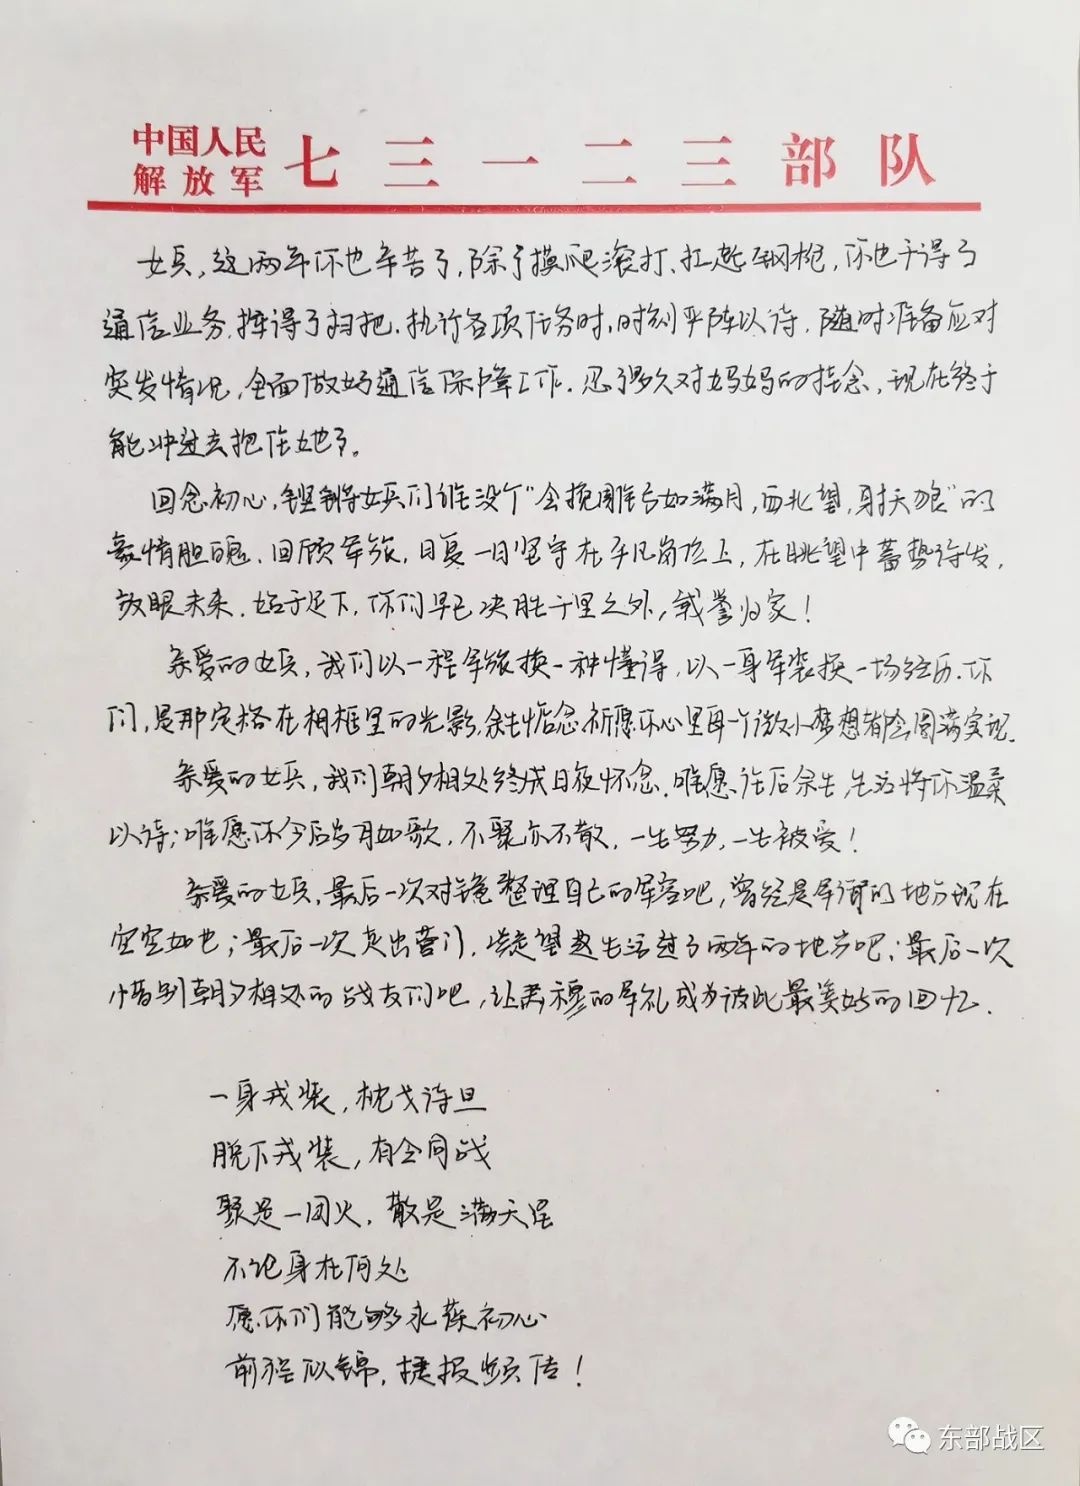 中国人民
解放军 七三一二三部队
女兵，这两年你也辛苦了，除了摸爬滚打、扛起钢枪，你也干得了
通信业务，挥得了扫把，执行各项任务时，时刻严阵以待，随时准备应对
突发情况，全面做好通信保障工作，忍了多久对妈妈的挂念，现在终于
能冲过去抱住她了。
回念初心，铿锵女兵们谁没个“会挽雕弓如满月，西北望，射天狼”的
豪情胆魄，回顾军旅，日复一日坚守在平凡岗位上，在眺望中蓄势待发，
放眼未来，始于足下，你们早已决胜千里之外，载誉归家！
亲爱的女兵，我们以一程军旅换一种懂得，以一身军装换一场经历，你
们，是那定格在相框里的光影，余生惦念，祈愿你心里每一个微小梦想都会圆满实现.
亲爱的女兵，我们朝夕相处终成日夜怀念，唯愿往后余生，生活将你温柔
以待；唯愿你今后岁月如歌，不聚亦不散，一生努力，一生被爱！
亲爱的女兵，最后一次对镜整理自己的军容吧，曾经是军衔的地方现在
空空如也；最后一次走出营门，凝望这生活过了两年的地方吧；最后一次
惜别朝夕相处的战友们吧，让肃穆的军礼成为彼此最美好的回忆.
一身戎装，枕戈待旦
脱下戎装，有令同战
聚是一团火，散是满天星
不论身在何处
愿你们能够永葆初心
前程似锦，捷报频传！
东部战区